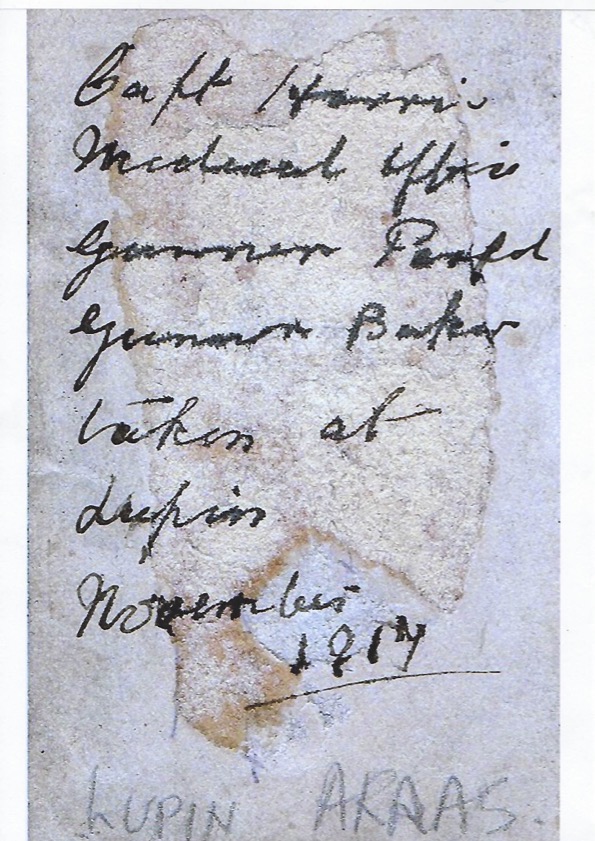 Capt Harris
Medical Offic
Gunner
Gunner Baker
taken at
Lupin
November
1917
LUPIN ARAAS.